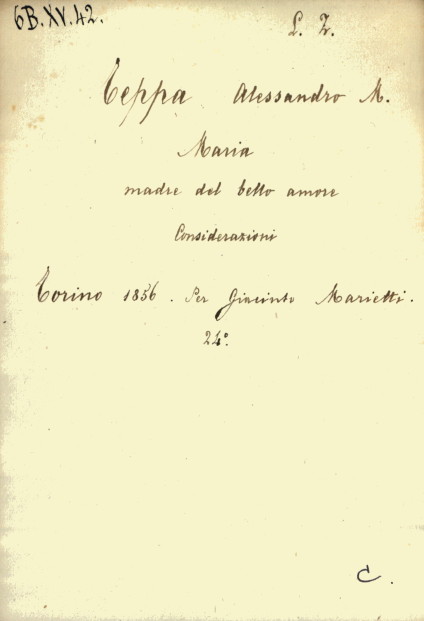 6B.XV.42.
L. Z.
Teppa Alessandro M.
Maria
madre del bello amore
Considerazioni
Torino 1856. Per Giacinto Marietti.
24°.
C.